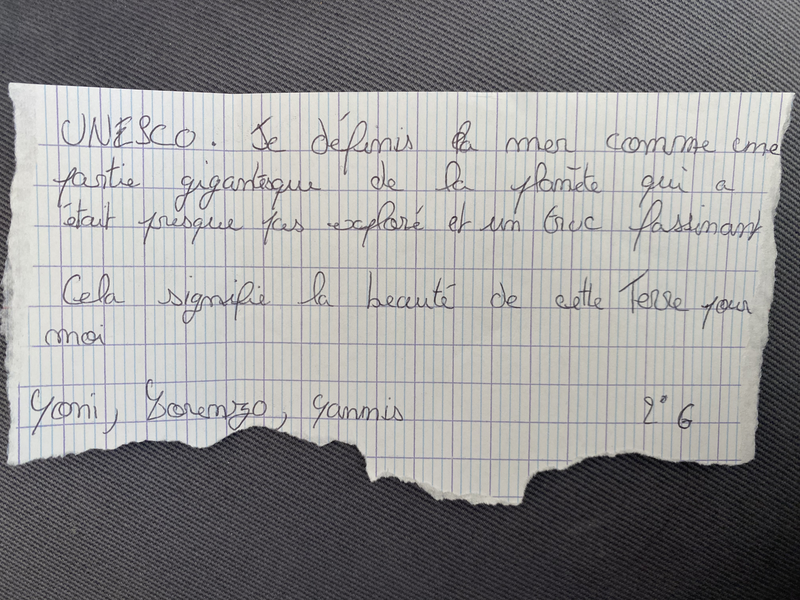 UNESCO. Je définis la mer comme une
partie gigantesque de la planète qui a
était presque pas exploré et un truc fassinant
Cela signifie la beauté de cette Terre pour
moi
Yoni, Lorenzo, Yannis 2° G